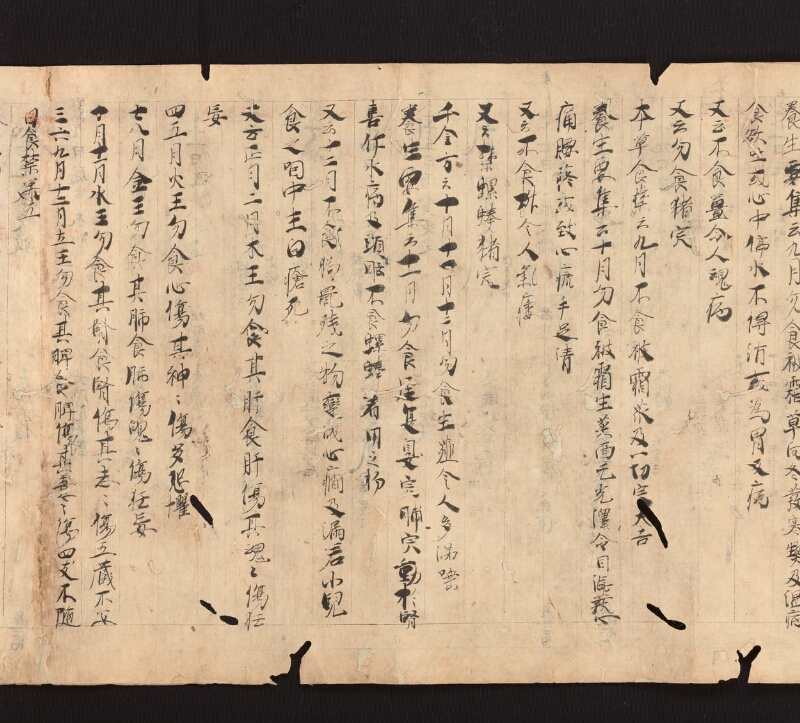 養生要集云九月勿食被霜草向冬發寒熱及溫病
食欲吐或心中停水不得消或為胃反病
又云不食薑令人魂病
又云勿食猪宍
本草食禁云九月不食被霜及一切宍大吉
養生要集云十月勿食被霜生菜面无光澤令目澁
痛腰落或致心瘧手足清
又云不食椒令人氣痿
又云螺蚌猪宍
千金方云十月十一月十二月勿食生薤令人多涕唾
養生要集云十一月勿食宍脯宍動於腎
喜作水病及頭眩不食螺蚌着甲之物
又云十二月不食殘之物或心痛及漏若小兒
食之口中生白瘡死
又方正月二月木王勿食其肝食肝傷其魂々傷狂
妄
四五月火王勿食心傷其神々傷多悲懼
七八月金王勿食其肺食肺傷魄々傷狂妄
十月十一月水王勿食其腎食腎傷其志々傷五藏不安
三六九月十二月土王勿食其脾食脾傷其意々傷四支不随
日食禁第五